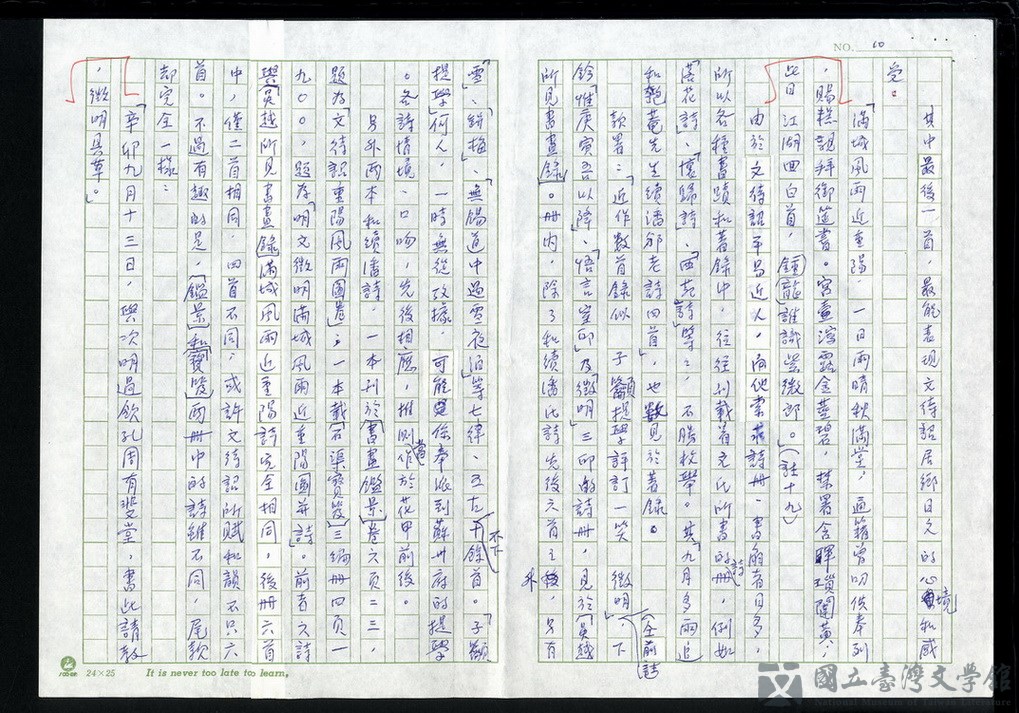 NO. 10
其中最後一首，最能表現文待詔居鄉日久的心境和感
受。
「滿城風雨近重陽，一日雨晴秋滿堂，通籍曾叨供奉列
，賜糕親拜御筵書。宮壺瀉露金莖碧，禁署含暉瑣闥黃，
此日江湖四白首，龍誰識紫微郎。」(註十九)
由於文待詔平易近人，向他索詩冊、書翰者日多，
所以各種書蹟和著錄中，往往刊載着文氏所書的詩冊，例如
「落花詩」、「懷歸詩」、「西苑詩」等等，不勝枚舉。其「九月多雨追
和匏菴先生續潘邠老詩四首」，也數見於著錄。
款署：「近作數首錄似 子籲提學評訂一笑 徵明」，下
鈐「惟庚寅吾以降」、「悟言室印」及「徵明」三印的詩冊，見於「吳越
所見書畫錄」。冊內，除了和續潘氏詩先後六首之外，另有
「雪」、「缾梅」、「無錫道中遇雪夜泊」等七律、五七不下十餘首。「子籲
提學」何人，一時無從攷據，可能是係奉派到蘇州府的提學
。各詩情境、口吻，先後相應，推測當作於花甲前後。
另外兩本和續潘詩，一本刊於「書畫鑑景」卷六頁三三，
題為「文待詔重陽風雨圖卷」；一本載「石渠寶笈」三編冊四頁一
九○○，題為「明文徵明滿城風雨近重陽圖并詩」。前者六詩
與「吳越所見書畫錄」滿城風雨近重陽詩完全相同，後冊六首
中，僅二首相同，四首不同；或許文待詔所賦和韻不只六
首。不過有趣的是，「鑑景」和「寶笈」兩冊中的詩雖不同，尾款
却完全一樣：
「辛卯九月十三日，與次明過飲孔周有斐堂，書此請教
，徵明具草。」
(全前註
24×25 It is never too late to learn.
國立臺灣文學館
National Museum of Taiwan Literature